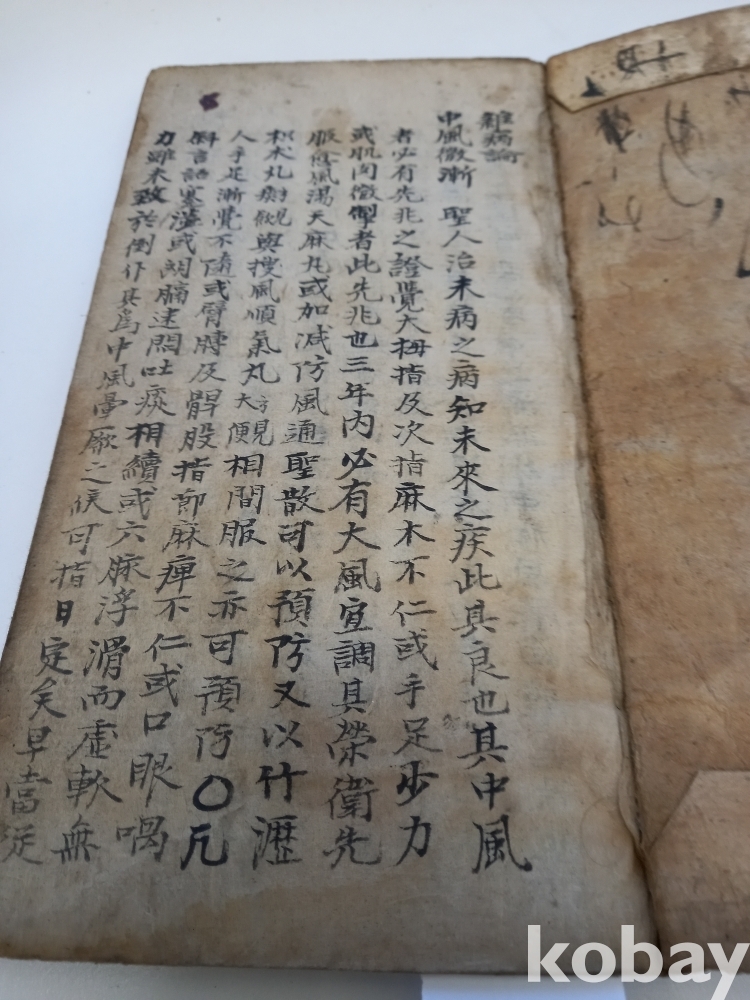 雜病論
中風微漸 聖人治未病之病知未來之疾此其良也其中風
者必有先兆之證覺大拇指及次指麻木不仁或手足步力
或肌肉微掣者此先兆也三年內必有大風宜調其榮衛先
服愈風湯天麻丸或加減防風通聖散可以預防又以竹瀝
枳朮丸與搜風順氣丸方見大便相間服之亦可預防〇凡
人手足漸覺不隨或臂膊及髀股指節麻痺不仁或口眼喎
斜言語蹇澁或胸膈迷悶吐痰相續或六脉浮滑而虛軟無
力雖未致於倒仆其爲中風暈厥之候可指日定矣早當從
kobay